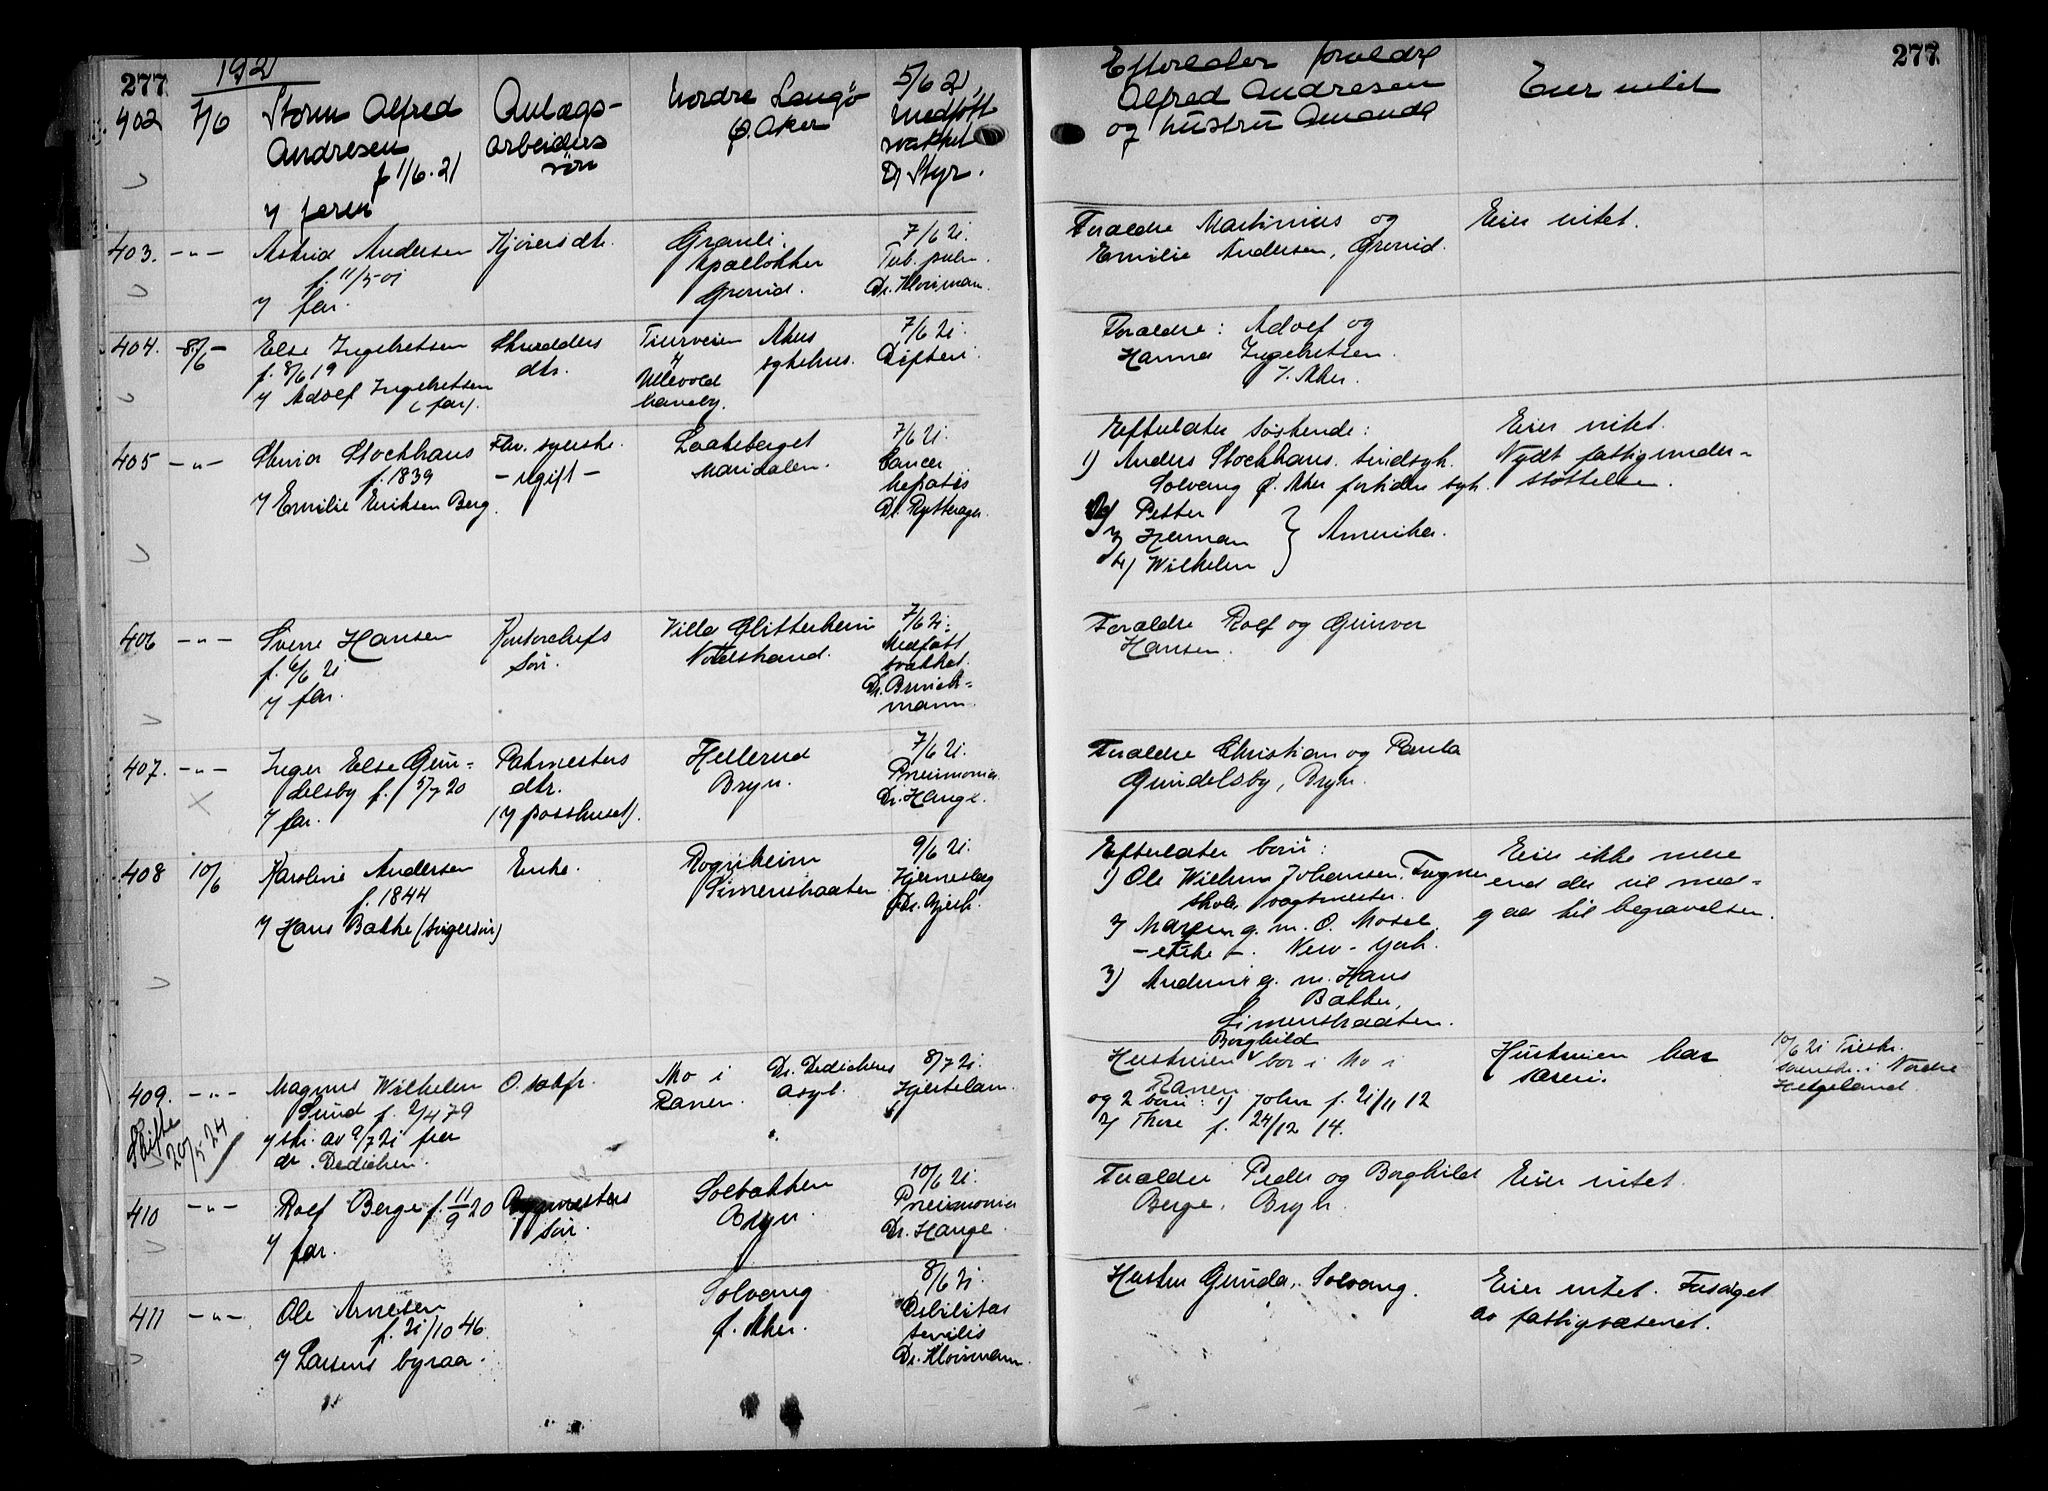 277
1921
277
402 7/6 Storm Alfred
Andresen
f 1/6.21
v/ faren
Anlægs-
arbeiders
søn
Nordre Langø
Ø. Aker
5/6 21
Medfødt
svakhet
Dr Styr.
Efterlater foreldre
Alfred Andresen
og hustru Amanda
Eier intet
403. -"- Astrid Andersen
f. 11/5 01
v/ far.
Kjøresdtr.
Granli
Apalløkken
Grorud.
7/6 21.
Tub. pulm.
Dr. Kloumann.
Foreldre Martinius og
Emilie Andersen, Grorud.
Eier intet.
404. 8/6 Else Ingebretsen
f. 8/6 19
v/ Adolf Ingebretsen
(far).
Skredders
dtr.
Tiurveien
4
Ullevold
haveby.
Akers
sykehus.
7/6 21.
Difteri
Foreldre: Adolf og
Hanna Ingebretsen
V. Aker.
405 -"- Stockhaus
f. 1839
v/ Emilie Eriksen Berg.
Fhv. syerske.
- ugift -
Laakeberget
Maridalen.
7/6 21.
Cancer
hepatis
Dr. Rytterager.
Efterlater søskende:
1) Anders Stockhaus. sindsyk.
Solvang Ø. Aker fortiden syk.
2) Petter
3) Herman
4) Wilhelm
Amerika.
Eier intet.
Nydt fattigunder-
støttelse.
406 -"- Sverre Hansen
f. 6/6 21
v/ far.
Kontorchefs
søn.
Villa Glitterheim
Nordstrand.
7/6 21.
Medfødt
svakhet.
Dr. Brinch-
mann.
Foreldre Rolf og Gunvor
Hansen.
407. -"- Inger Else Gun-
delsby f. 5/7 20
v/ far.
Pakmesters
dtr.
(v/ posthuset).
Hellerud
Bryn.
7/6 21.
Pneumonia
Dr. Hauge.
Foreldre Christian og Paula
Gundelsby, Bryn.
408 10/6 Karoline Andersen
f. 1844
v/ Hans Bakke (svigersøn)
Enke.
Rognheim
Simenstraaten
9/6 21.
Hjerneslag
Dr. Gjersh.
Efterlater børn:
1) Ole Wilhelm Johansen,
skole vagtmester.
2) Maren g. m. O. Mosel
- enke -. New-York.
3) Andrine g. m. Hans
Bakke,
Simenstraaten.
Eier ikke mere
end der vil med-
gaa til begravelsen.
409. -"- Magnus Wilhelm
Sund f. 2/4 79
v/ skr. av 9/7 21 fra
dr. Dedichen.
Skifte
20/5 24
O. sakfr.
Mo i
Ranen.
Dr. Dedichens
asyl.
8/7 21.
Hjertelam.
Hustruen Borghild bor i Mo i
Ranen
og 2 børn: 1) John f. 21/11 12
2) Thore f. 24/12 14.
Hustruen har
særeie.
10/6 21 Tilskr.
sorenskr. i Nordre
Helgeland.
410 -"- Rolf Berge f. 11/9 20
v/ far.
Bygmesters
søn.
Solbakken
Bryn.
10/6 21.
Pneumonia
Dr. Hauge.
Foreldre Peder og Borghild
Berge, Bryn.
Eier intet.
411 -"- Ole Arnesen
f. 21/10 46.
v/ Larsens byraa.
Solvang
Ø. Aker.
8/6 21.
Debilitas
senilis
Dr. Kloumann.
Hustru Gunda, Solvang.
Eier intet. Forsørget
av fattigvæsenet.